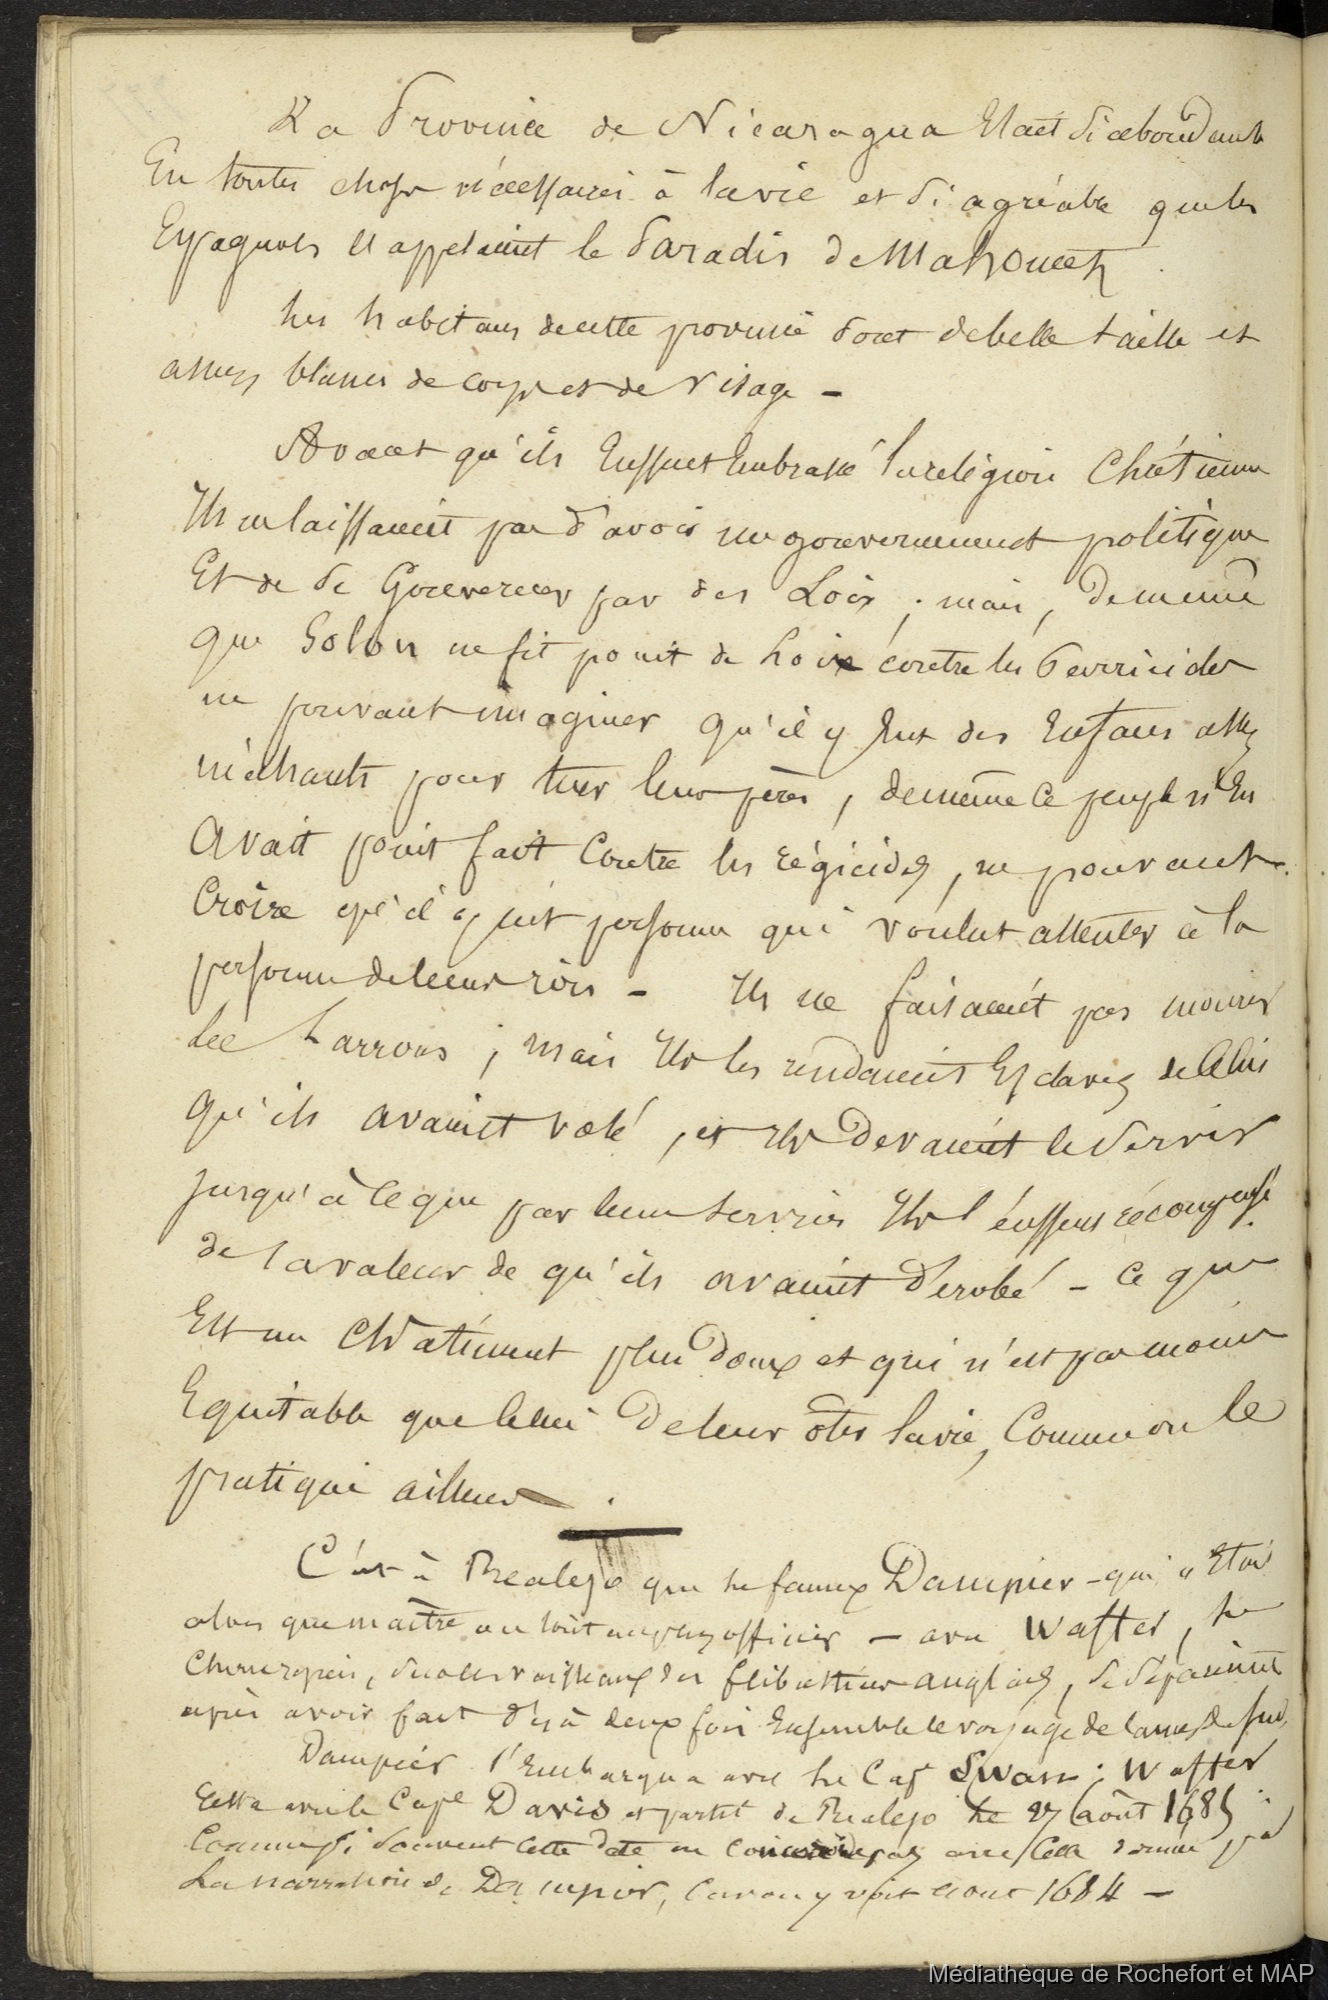 La Province de Nicaragua Etait Si abondante
En toutes choses nécessaires à la vie et Si agréable que les
Espagnols l'appelaient le Paradis de Mahomet
Les habitans de cette province sont de belle taille et
assez blancs de corps et de visage –
Avant qu'ils Eussent Embrassé la religion Chrétienne
Ils ne laissaient pas d'avoir un gouvernement politique
Et de Se Gouverner par des Loix ; mais, de même
que Solon ne fit point de Loix contre les Parricides
ne pouvant imaginer qu'il y Eut des Enfans assez
méchants pour tuer leurs pères, de même ce peuple n'En
avait point fait Contre les régicides, ne pouvant
Croire qu'il y eut personne qui voulut attenter à la
personne de leurs rois – Ils ne faisaient pas mourir
les Larrons ; mais Ils les rendaient Esclaves de celui
qu'ils avaient volé, et Ils devaient le Servir
jusqu'à ce que par leurs services Ils l'eussent récompensé
de la valeur de qu'ils avaient dérobé – ce qui
Est un Châtiment plus doux et qui n'est pas moins
Equitable que celui de leur ôter la vie, Comme on le
pratique ailleurs .
C'est à Realejo que le fameux Dampier – qui n'Etait
alors que maître ou tout au plus officier – avec Waffer, le
Chirurgien, des vaisseaux des flibustiers anglais, Se Séparèrent
après avoir fait déjà deux fois Ensemble le voyage de la mer du Sud,
Dampier s'Embarqua avec le Cap Swan ; Waffer
resta avec le Cape Davis et partit de Realejo le 27 août 1685 :
Comme si souvent cette date ne coincide pas avec celle donnée par
La narration de Dampier, car on y voit aout 1684 –
Médiathèque de Rochefort et MAP